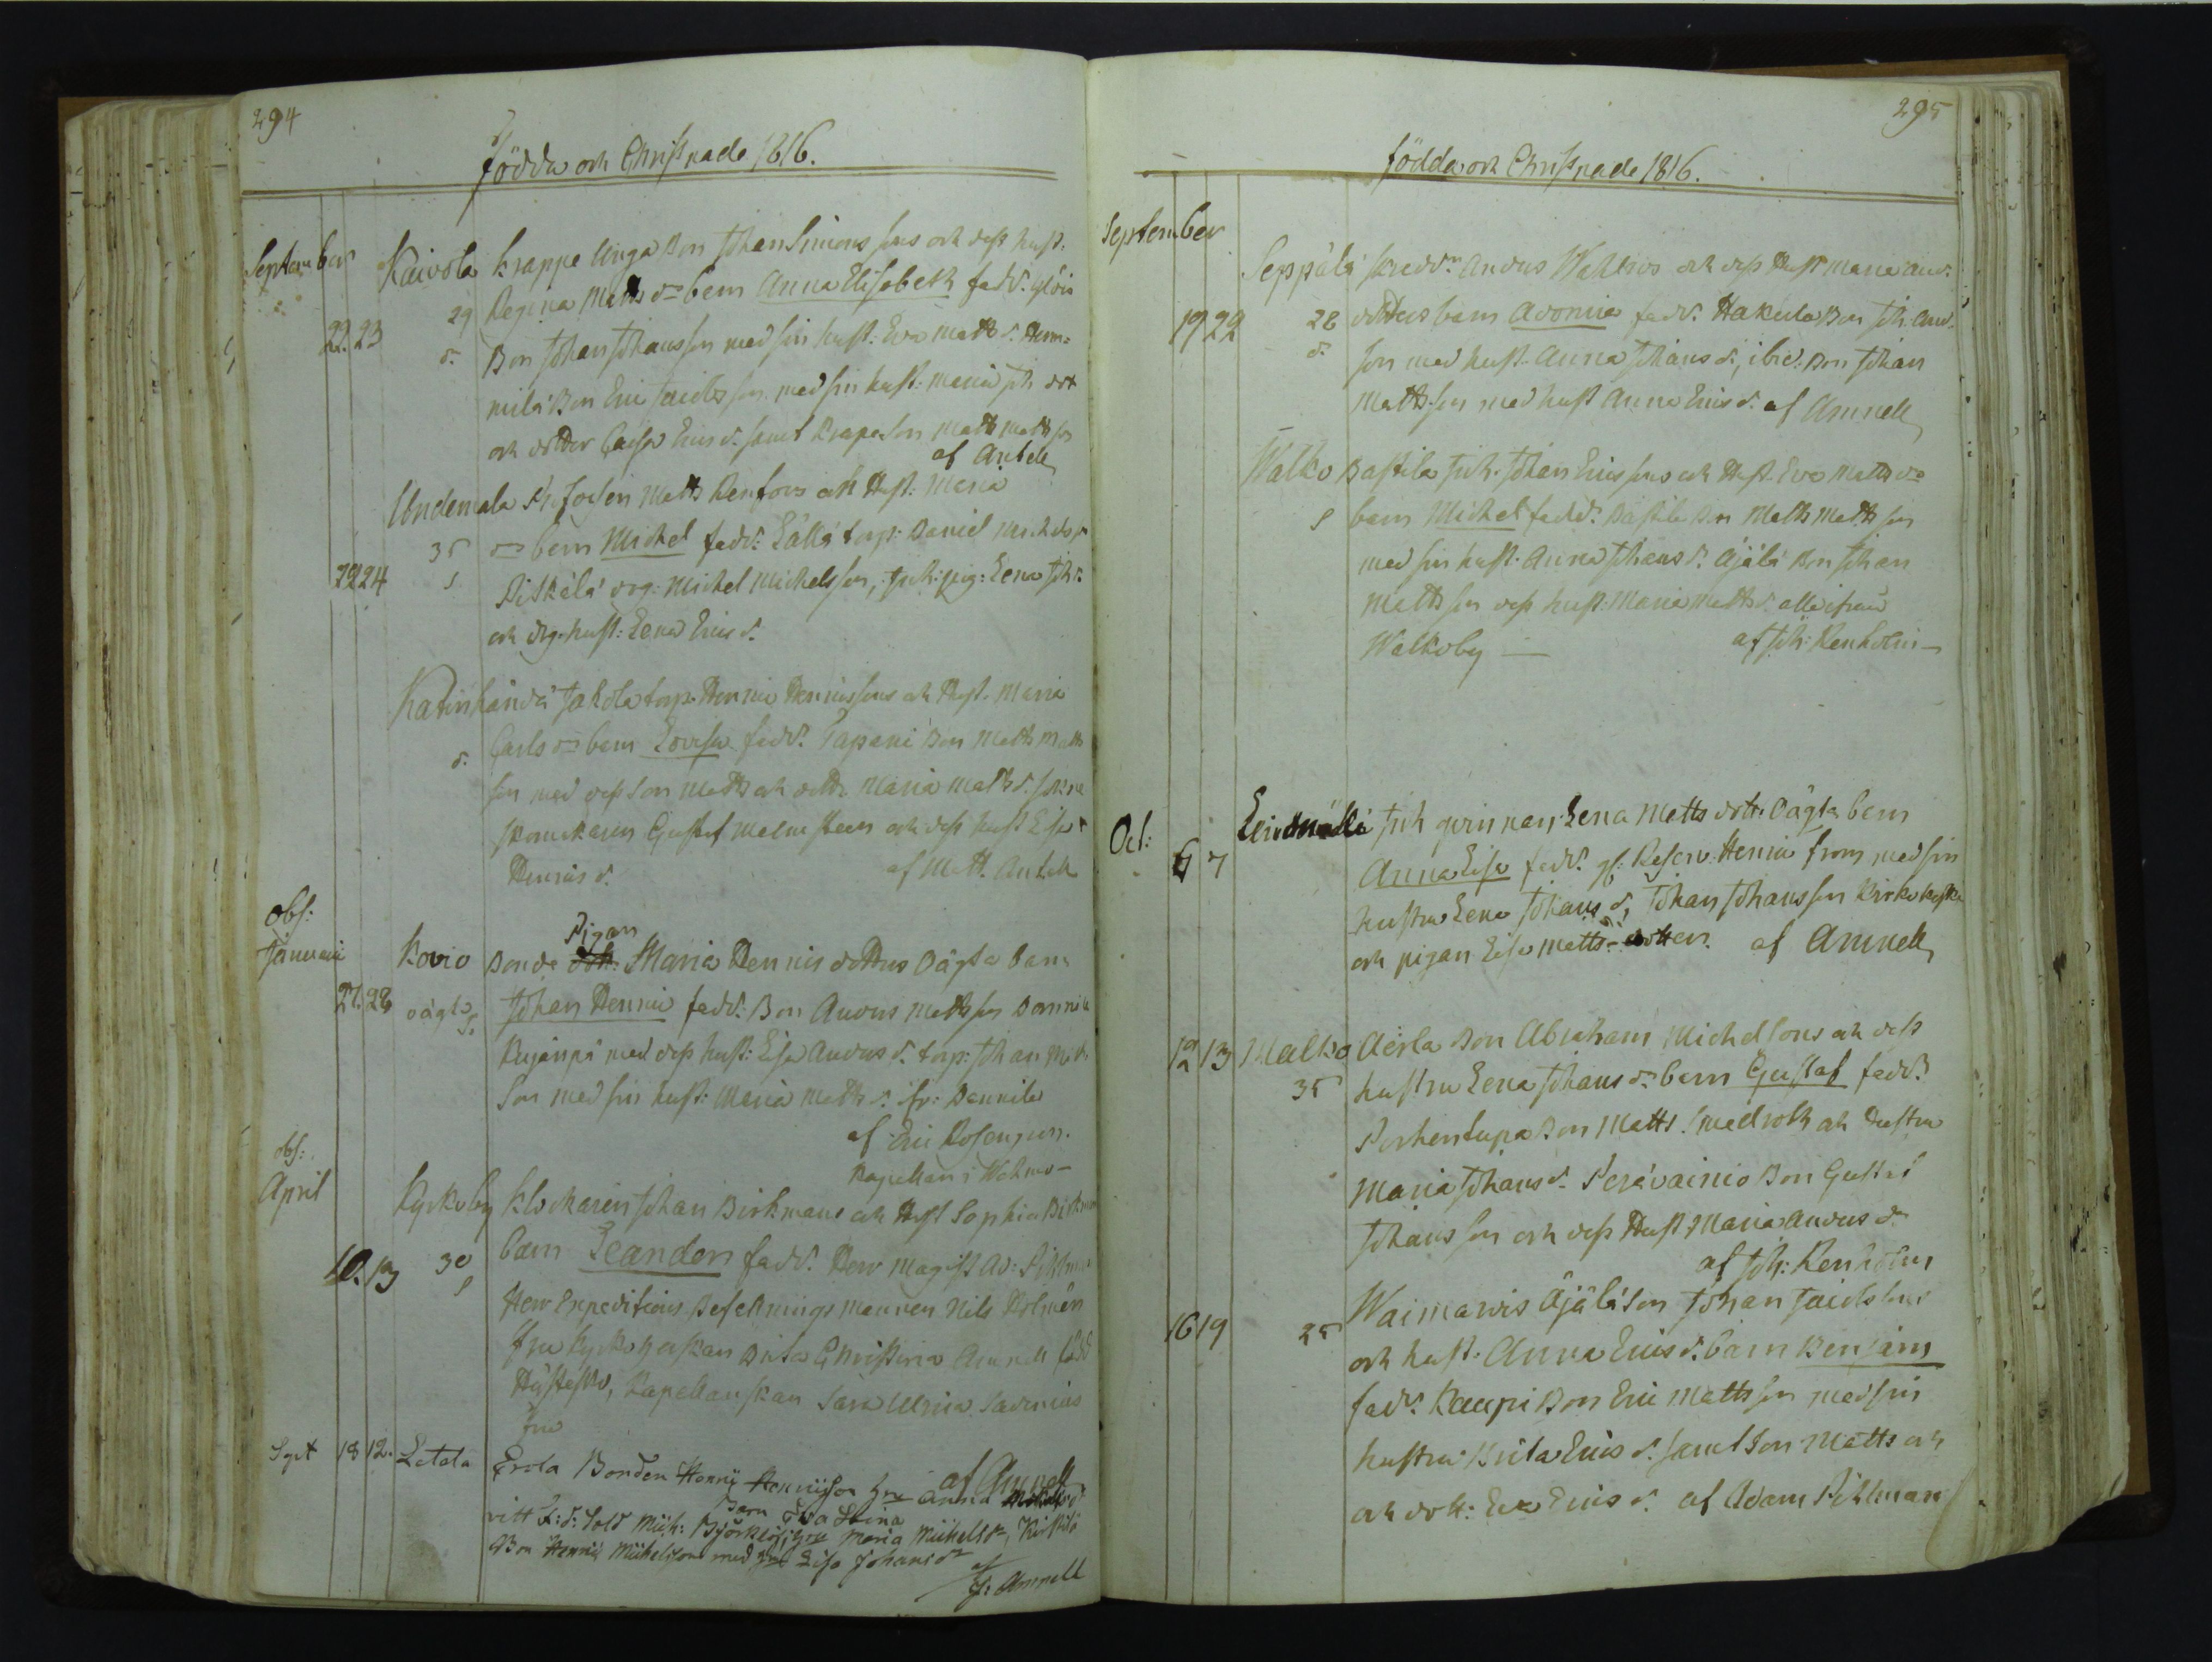 294
födda och Christnade 1816.
September
Kaivola Krappe Unga Bon Johan Simons sons och dess hust:
29 Regina Matts dr barn Anna Elisabeth fadd:
22. 23 d. Bon Johan Johansson med sin hust: Eva Matts d.
Bon Eric Jacobsson med sin hust: Maria Joh dot
och dotter Caisa Erics d. samt Krape son Matts Matts son
af Antell
Undemala Matts Renfors och Hust: Maria
35 barn Michel fadd: torp: Daniel Michels
22 24 s drg: Michel Michelsson, Inh: pig: Lena Joh d.
och drg. hust: Lena Erics d.
Katinhändä Jakola torp. Henric Henrics sons och Hust. Maria
d. Carls dr barn Lovisa fadd. Tapani Bon Matts Matts
son med dess son Matts och dottr. Maria Matts d.
skomakaren Gustaf Malmsteen och dess hust Lisa
Henrics d. af Matt. Antell
Obs:
Januari Kovio Bonde Pigan Maria Henrics dotters Oägta barn
27. 28 oägta s. Johan Henric fadd: Bon Anders Mattsson Bannila
med dess hust: Lisa Anders d. torp: Johan Mich
son med sin hust: Maria Matts d. fr: Bannila
af Eric Rosengren.
Kapellan i
obs:
April Kyrkoby Klockaren Johan Birkmans och Hust Sophia Birkman
10. 13 30 s barn Leander fadd. Herr Magist Ad: Pihlman
Herr Expeditions Befallningsmannen Nils Holmén
fru Kyrkoherskan Brita Christina Amnell född
Kapellanskan Sara Ulrica Savenius
fru
af Amnell
Sept 18 12. Latala Erola Bonden Henric Henricsson hu Anna
Barn Eva Stina
witt: Sold Mich: Björklöf, hu Maria Michels dr, Kirstilä
Bon Henric Michelsson med hu Lisa Johans dr
af J: Amnell
295
födda och Christnade 1816.
September
Seppälä skredd:n Anders Wahlros och dess Hust Maria And:
19 22 28 dotters barn Avonia fadd. Hakula Bon Joh: And:
d. son med hust. Anna Johans d., ibid: Bon Johan
Matts son med hust Anna Erics d. af Amnell
Walko Bastila Inh. Johan Erics sons och Hust. Eva Matts dr
s barn Michel fadd. Bastila Bon Matts Matts son
med sin hust. Anna Johans d. Äjälä Bon Johan
Matts son dess hust: Maria Matts d. alla ifrån
Walkoby — af Joh: Renholm —
Oct: Inh qvinnan Lena Matts dott. Oägta barn
6 7 Anna Lisa fadd. gl: Reserv: Henric From med sin
hustru Lena Johans d, Johan Johansson
och pigan Lisa Matts-dotter. af Amnell
12 13 Malko Aerla Bon Abraham Michelsons och dess
35 hustru Lena Johans dr barn Gustaf fadd.
Porhentupa Bon Matts Smedroth och Hustru
Maria Johans d. Perävainio Bon Gustaf
Johans son och dess Hust Maria Anders d.
af Joh: Renholm
16 19 25 Waimaris Äjälä son Johan Jacobsons
och hust. Anna Erics d. barn Benjam
fadd. Kaupi Bon Eric Mattsson med sin
hustru Brita Erics d. samt son Matts och
och dott: Eva Erics d. af Adam Pihlman